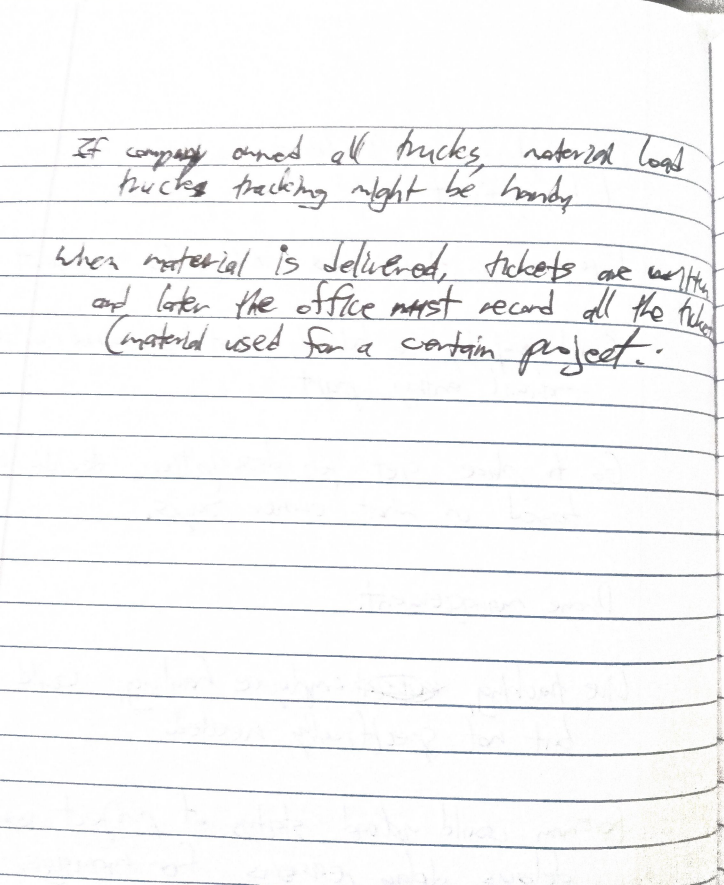 If company owned all trucks, material load
trucks tracking might be handy
When material is delivered, tickets are written
and later the office must record all the tickets
(material used for a certain project.